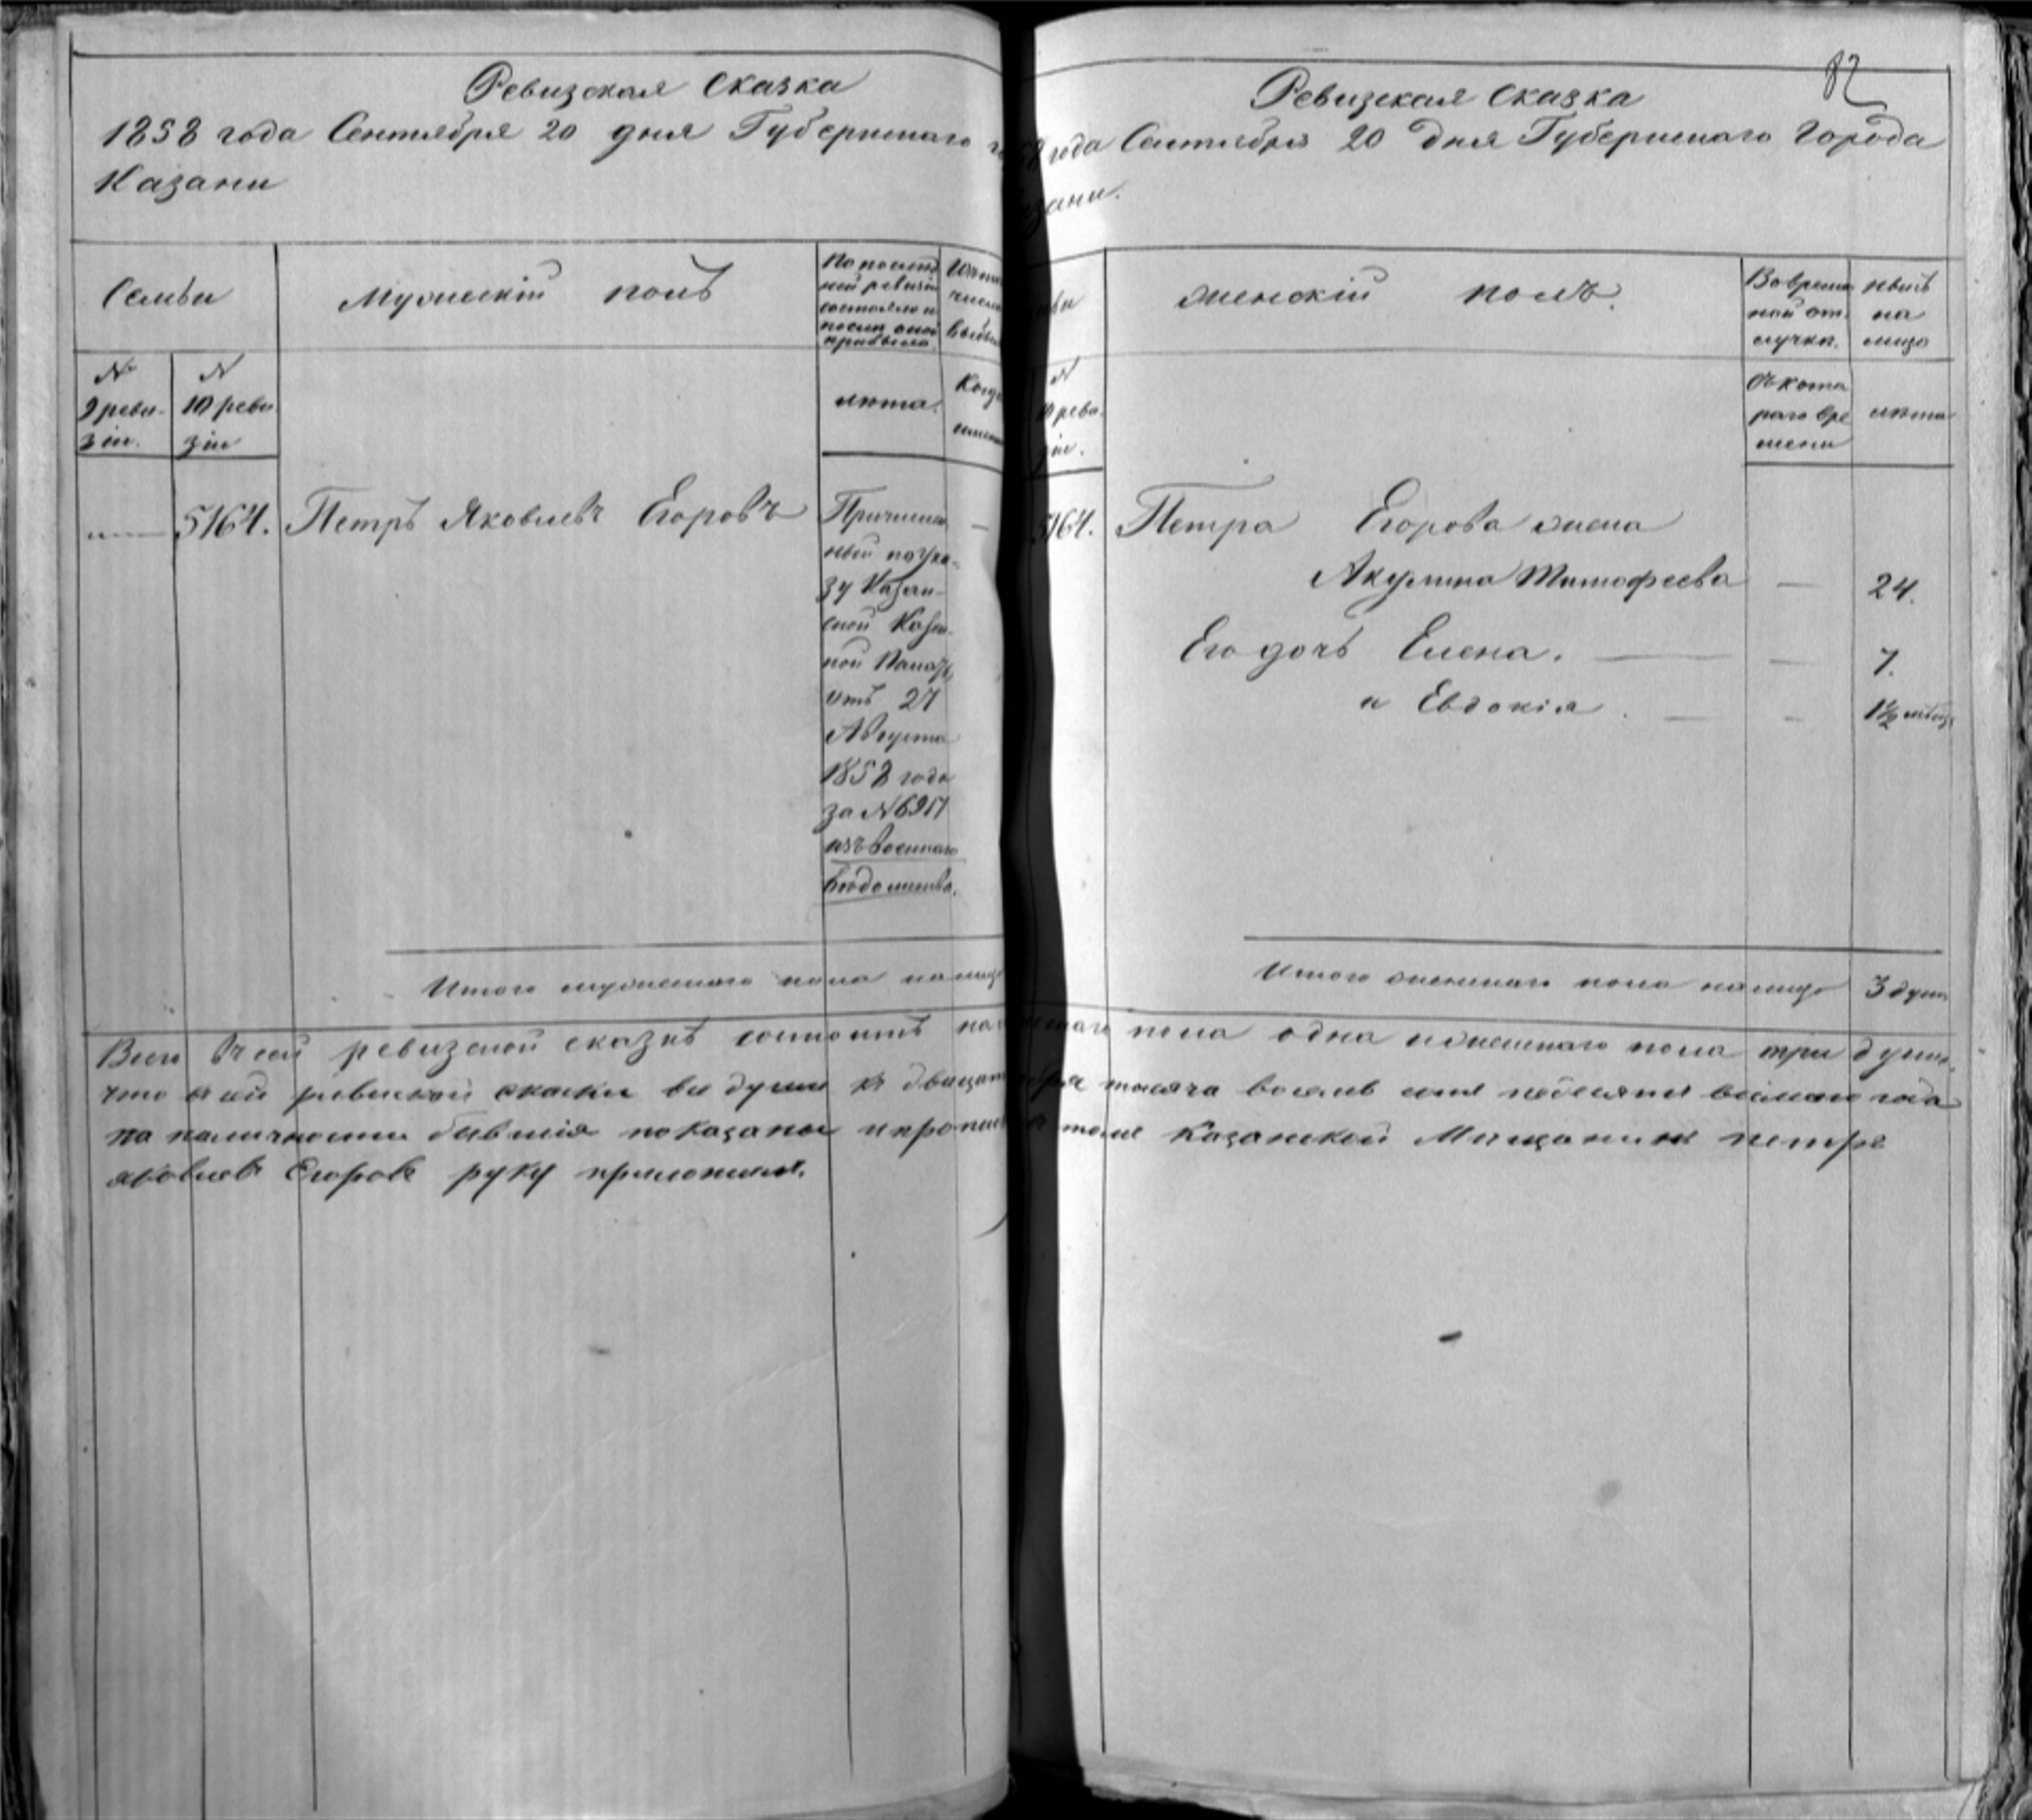 Ревизская Сказка
1858 года Сентября 20 дня Губернскаго
Казани
Семьи
Мужескій полъ
По послед
ней ревизіи
состояло и
после оной
прибыло.
Изъ того
числа
выбыло
№
9 реви-
зіи.
№
10 реви
зіи
лѣта.
Когда
именно
5164. Петръ Яковлевъ Егоровъ
Причислен
ный по Ука-
зу Казан-
ской Казен-
ной Палаты
отъ 27
Августа
1858 года
за №6917
изъ военнаго
вѣдомства.
Итого мужескаго пола на лицо
82
Ревизская Сказка
58 года Сентября 20 дня Губернскаго Города
зани.
мьи
женскій полъ.
Во времен
ной от
лучкѣ.
нынѣ
на
лицо
№
10 реви-
зіи.
Съ кота
раго вре
мени
лѣта
5164. Петра Егорова жена
Акулина Тимофеева — 24.
Его дочь Елена. — — 7.
и Евдокія. — - 1½ мѣсяц
Итого женскаго пола на лицо 3 души
Всего въ сей ревизской сказкѣ состоитъ на скаго пола одна и женскаго пола три души,
что в сей ревиской скаски все души къ двацат бря тысяча восемь сотъ педесятъ восмаго года
по наличности бывшія показаны и пропис в томъ Казанской Мищанинъ петръ
яковлевъ Егоровъ руку приложилъ.